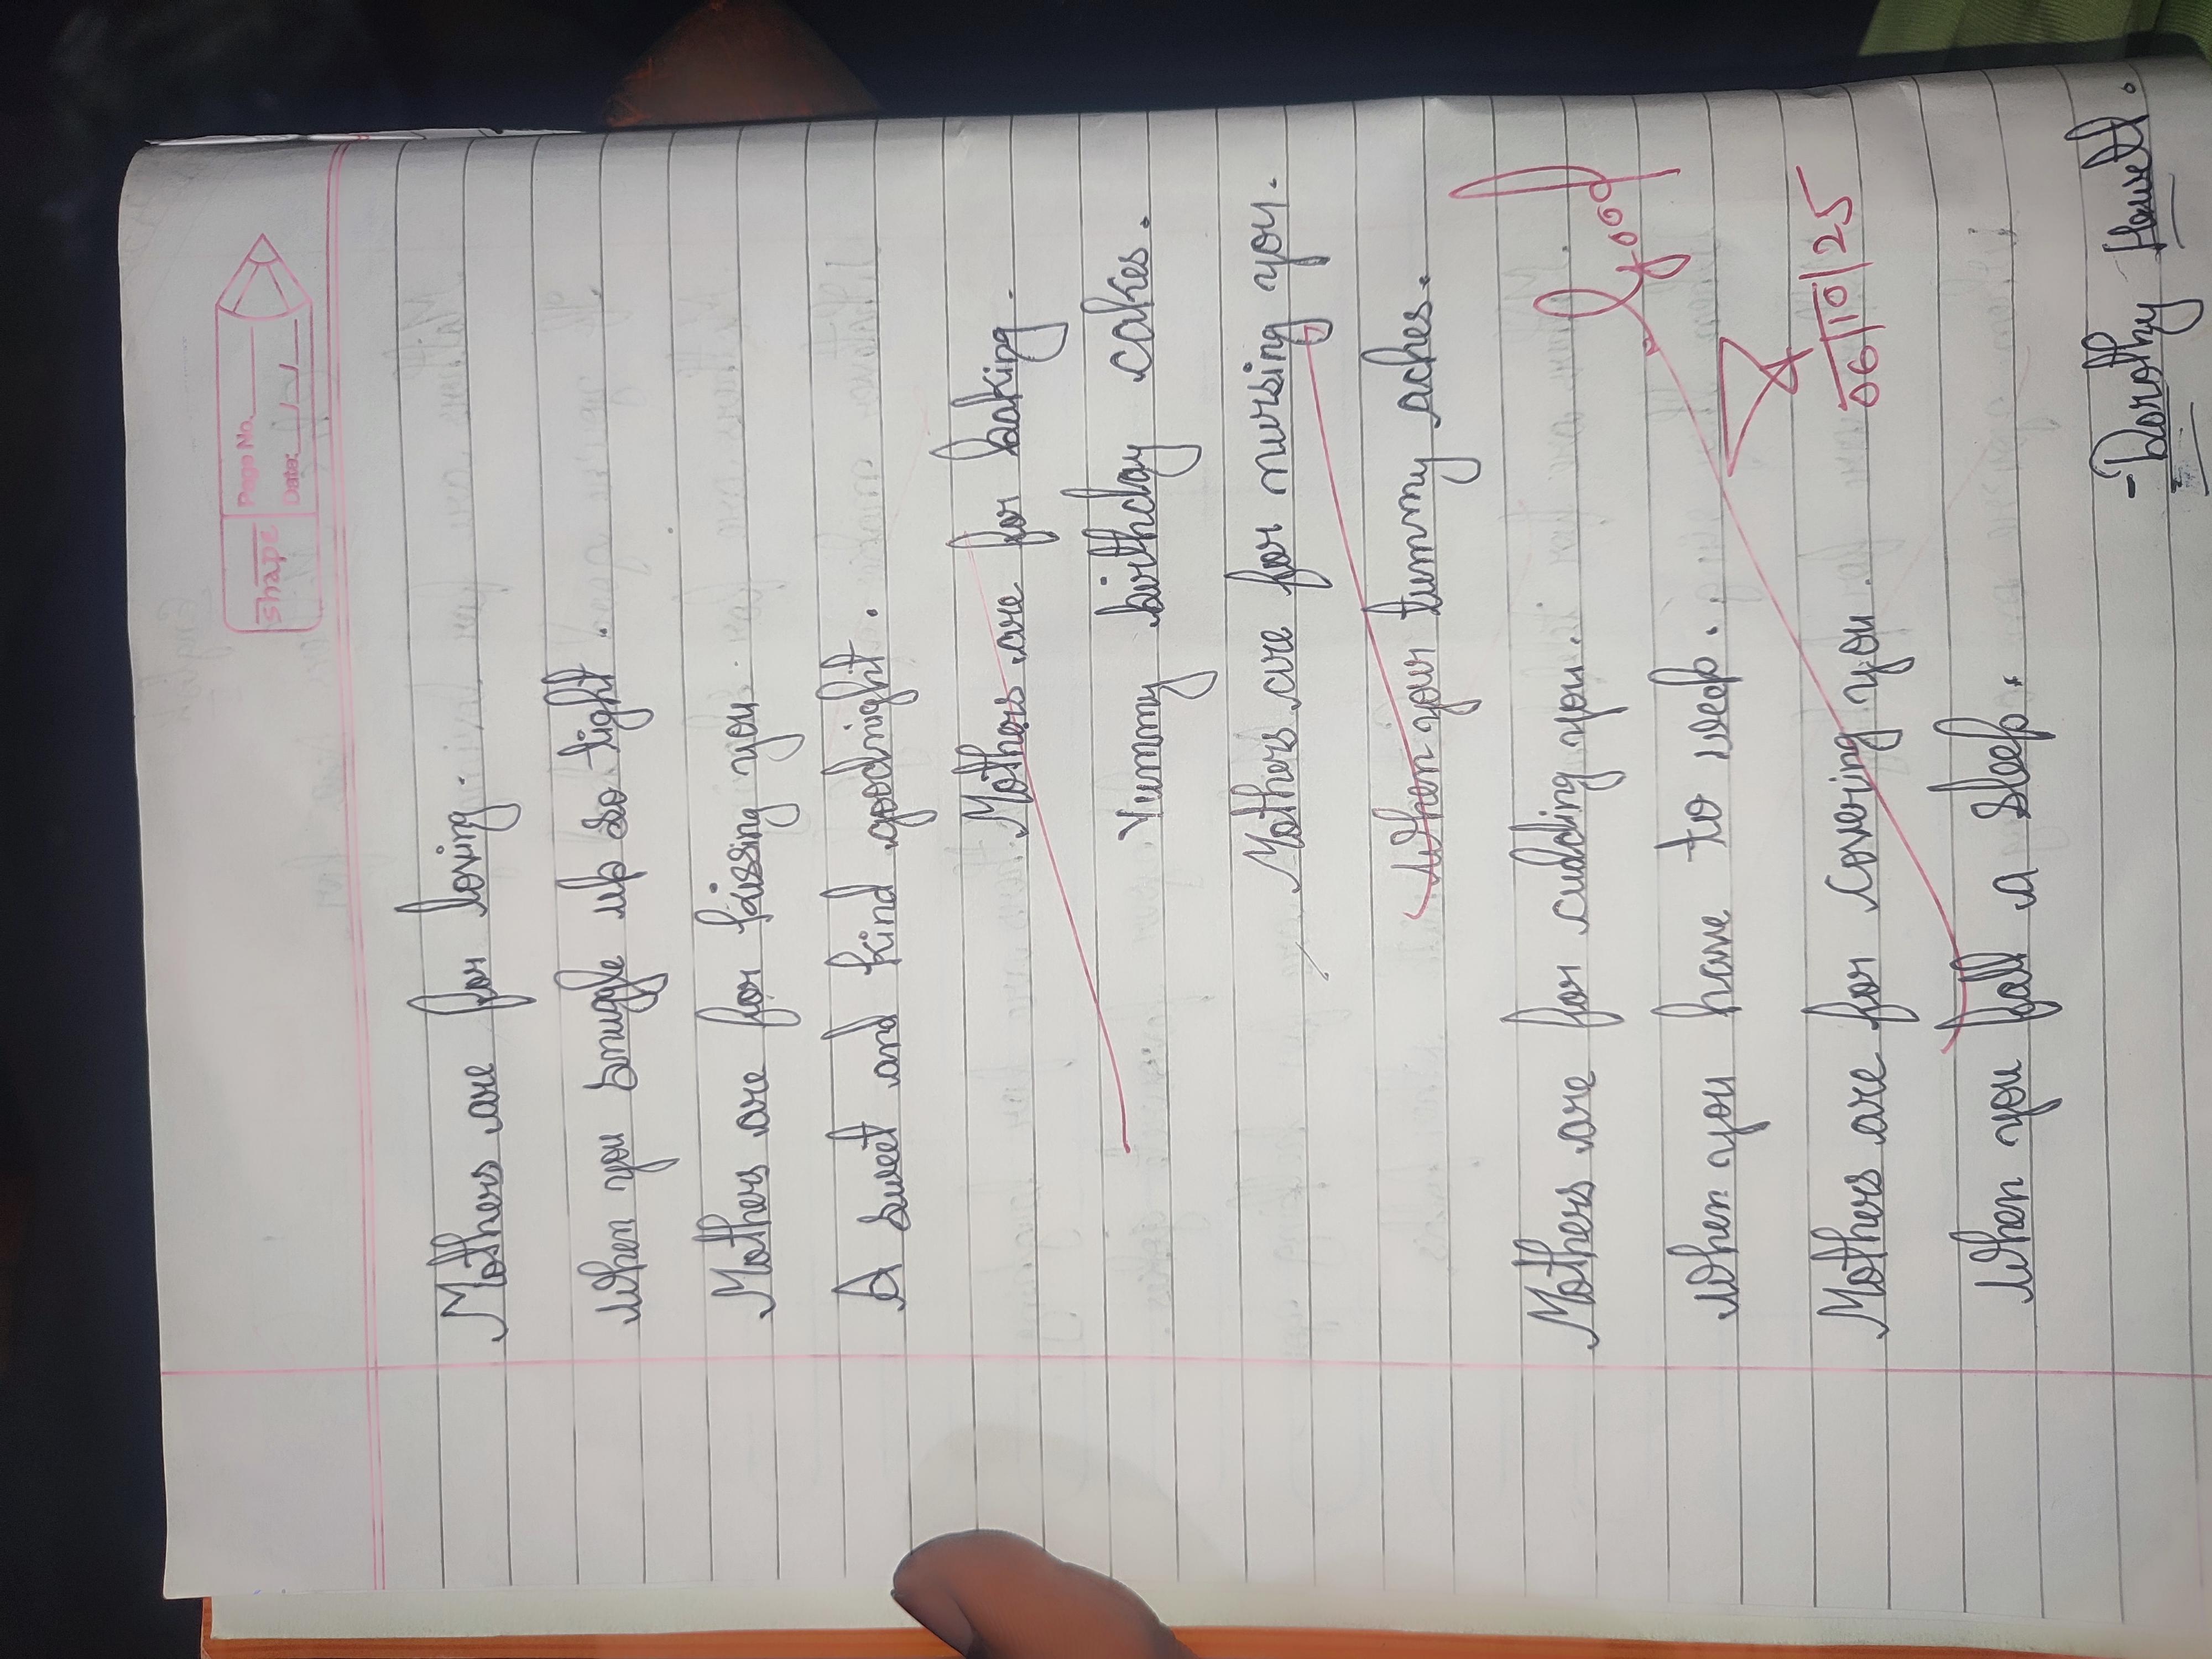 Shape
Page No.
Date:
Mothers are for loving.
When you snuggle up so tight.
Mothers are for kissing you.
A sweet and kind goodnight.
Mothers are for baking.
Yummy birthday cakes.
Mothers are for nursing you.
When your tummy aches.
Mothers are for cuddling you.
When you have to weep.
Mothers are for covering you
When you fall a sleep.
Good
06/10/25
-Dorothy Howell.